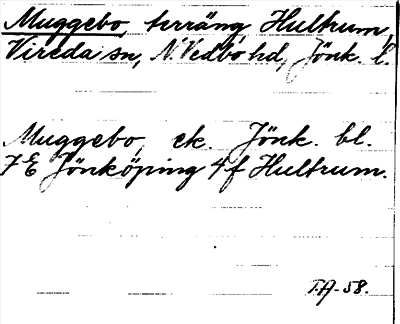 Muggebo, terräng Hultrum,
Vireda sn, N. Vedbo hd, Jönk. l.
Muggebo, ek. Jönk. bl.
7E Jönköping 4f Hultrum.
T.A-58.